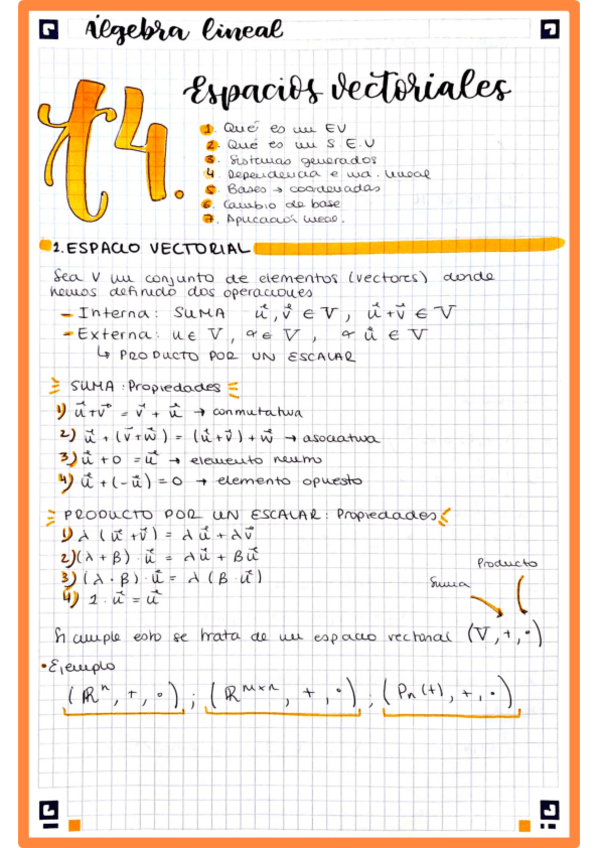 Álgebra lineal
t4.
Espacios vectoriales
1. Qué es un EV
2. Qué es un S.E.V
3. Sistemas generados
4. Dependencia e ind. lineal
5. Bases → coordenadas
6. Cambio de base
7. Aplicación lineal.
1. ESPACIO VECTORIAL
Sea V un conjunto de elementos (vectores) donde
hemos definido dos operaciones
- Interna: SUMA u⃗, v⃗ ∈ V, u⃗+v⃗ ∈ V
- Externa: u ∈ V, α ∈ V, α u⃗ ∈ V
↳ PRODUCTO POR UN ESCALAR
SUMA: Propiedades
1) u⃗+v⃗ = v⃗ + u⃗ → conmutativa
2) u⃗ + (v⃗+w⃗) = (u⃗+v⃗) + w⃗ → asociativa
3) u⃗ + 0 = u⃗ → elemento neutro
4) u⃗ + (-u⃗) = 0 → elemento opuesto
PRODUCTO POR UN ESCALAR: Propiedades
1) λ (u⃗ + v⃗) = λ u⃗ + λ v⃗
2) (λ + β) · u⃗ = λ u⃗ + β u⃗
3) (λ · β) · u⃗ = λ (β · u⃗)
4) 1 · u⃗ = u⃗
Producto
Suma
Si cumple esto se trata de un espacio vectorial (V, +, ·)
• Ejemplo
(ℝⁿ, +, ·) ; (ℝᵐˣⁿ, +, ·) ; (Pₙ(t), +, ·)